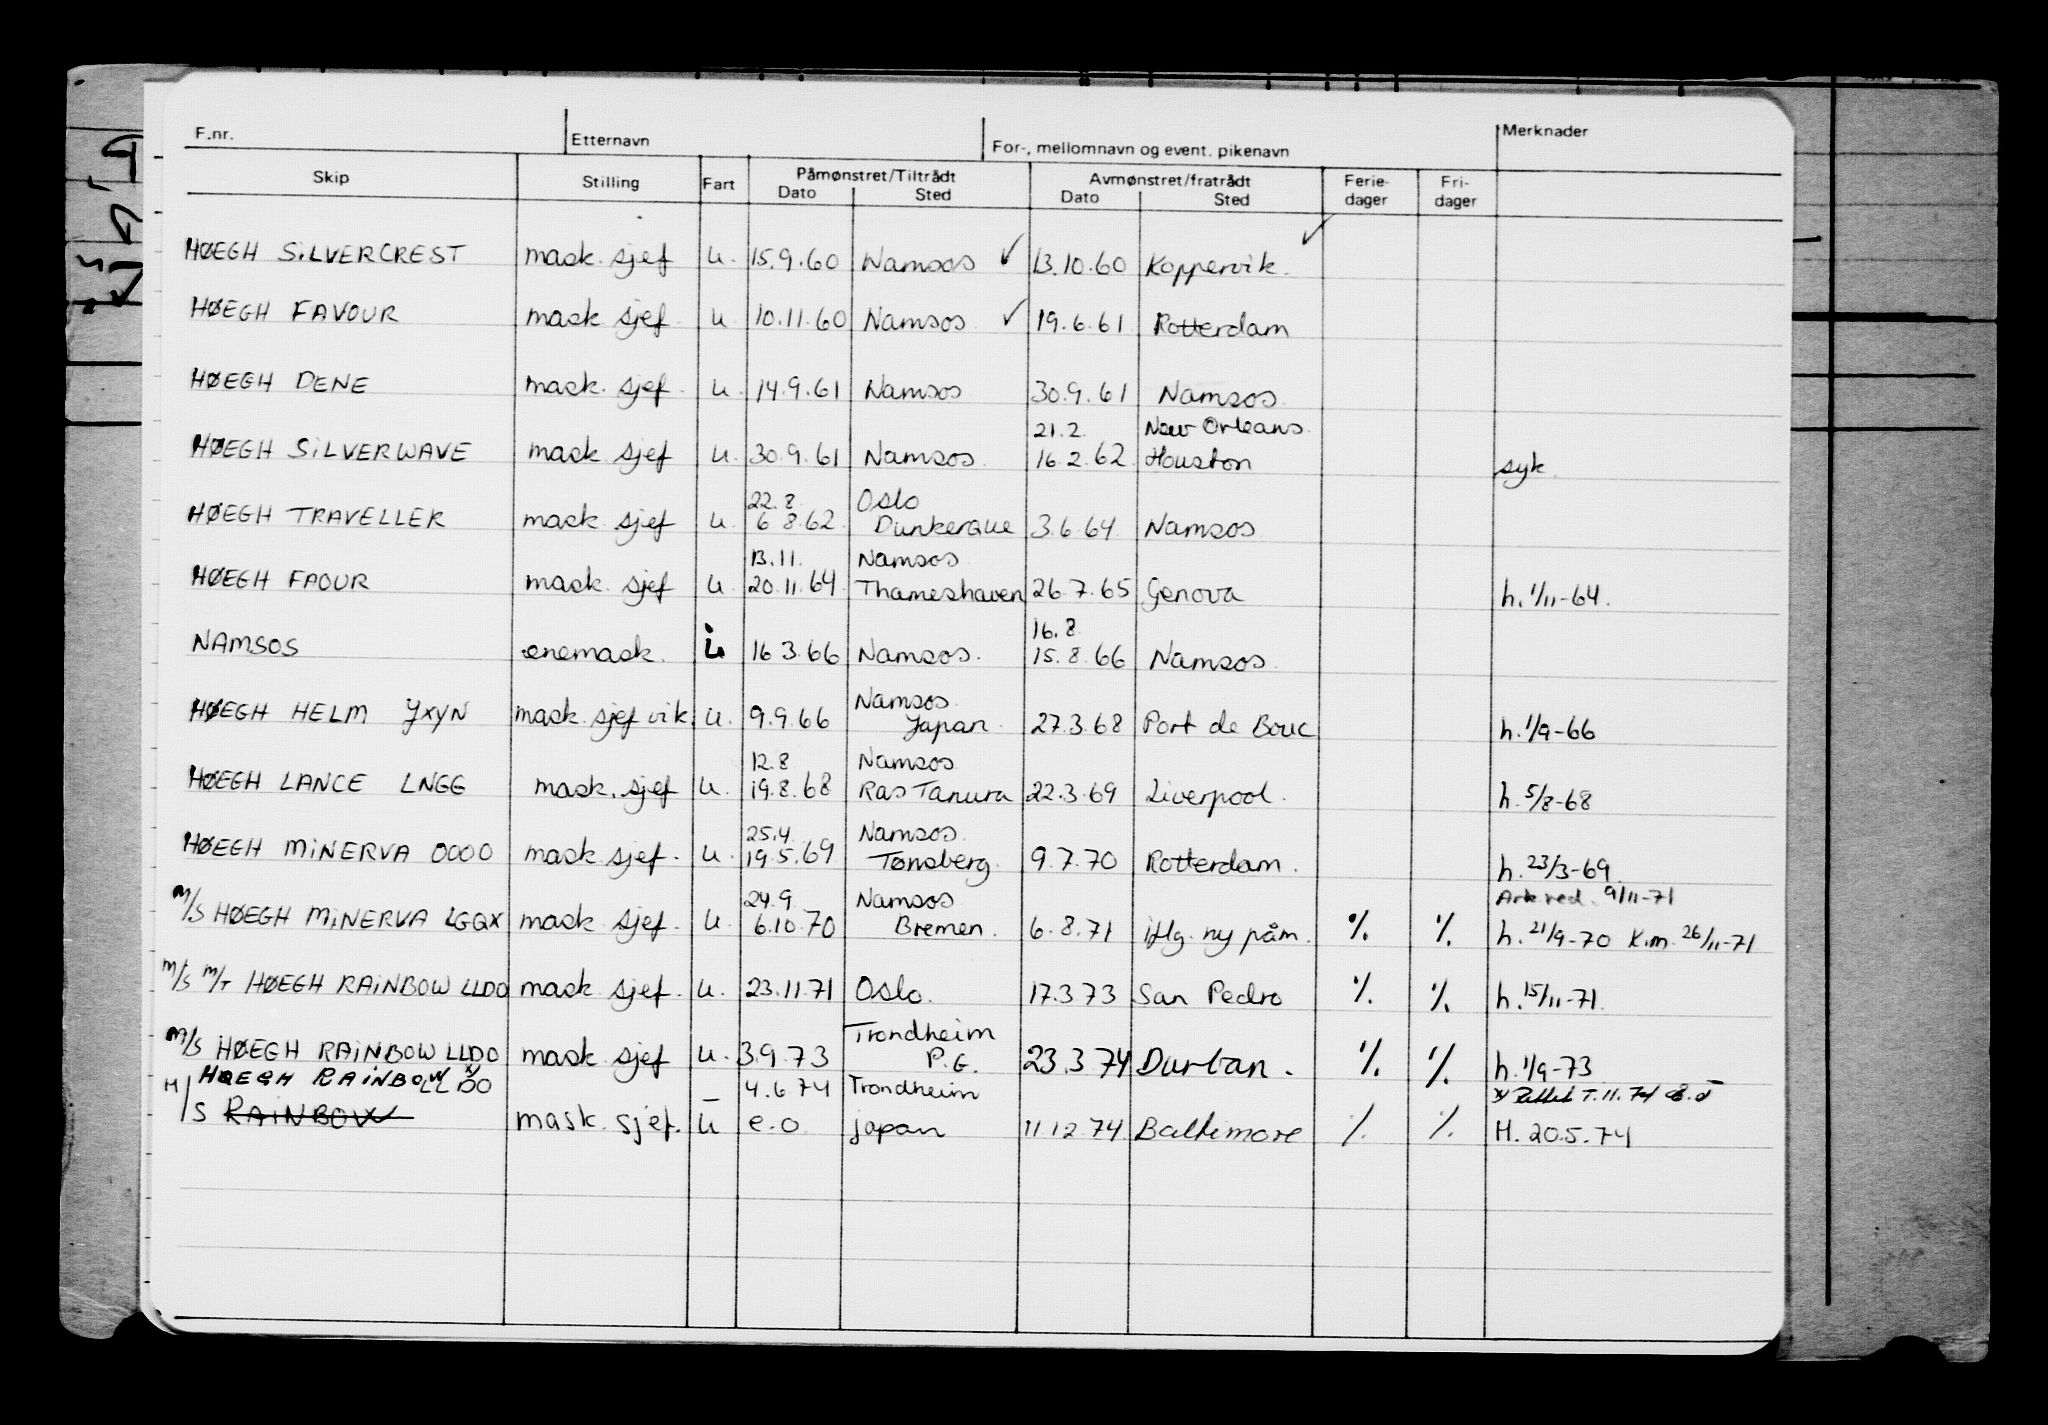 F.nr. Etternavn For-, mellomnavn og event. pikenavn Merknader
Skip Stilling Fart Påmønstret/Tiltrådt Avmønstret/fratrådt Ferie- Fri-
Dato Sted Dato Sted dager dager
HØEGH SILVERCREST mask. sjef u. 15.9.60 Namsos ✓ 13.10.60 Koppervik. ✓
HØEGH FAVOUR mask sjef u. 10.11.60 Namsos ✓ 19.6.61 Rotterdam
HØEGH DENE mask. sjef. u. 14.9.61 Namsos 30.9.61 Namsos.
21.2. New Orleans.
HØEGH SILVERWAVE mask sjef u. 30.9.61 Namsos. 16.2.62 Houston syk.
22.8. Oslo
HØEGH TRAVELLER mask. sjef u. 6.8.62. Dunkerque 3.6.64. Namsos.
13.11. Namsos.
HØEGH FAOUR mask. sjef u. 20.11.64 Thameshaven 26.7.65 Genova h. 1/11-64.
16.8.
NAMSOS enemask. i 16.3.66 Namsos. 15.8.66 Namsos.
Namsos.
HØEGH HELM JXYN mask. sjef vik. u. 9.9.66 Japan. 27.3.68 Port de Bouc h. 1/9-66
12.8 Namsos
HØEGH LANCE LNGG mask. sjef u. 19.8.68 Ras Tanura 22.3.69 Liverpool. h. 5/8-68
25.4. Namsos.
HØEGH MINERVA OOOO mask sjef. u. 19.5.69 Tønsberg. 9.7.70 Rotterdam. h. 23/3-69.
24.9 Namsos Ark. red. 9/11-71
M/S HØEGH MINERVA LGQX mask. sjef. u. 6.10.70 Bremen. 6.8.71 iflg. ny påm. % % h. 21/9-70 K.m. 26/11-71
M/S M/T HØEGH RAINBOW LLDO mask sjef. u. 23.11.71 Oslo. 17.3.73 San Pedro % % h. 15/11-71.
Trondheim
M/S HØEGH RAINBOW LLDO mask. sjef u. 3.9.73 P.G. 23.3.74 Durban. % % h. 1/9-73
HØEGH RAINBOW LLDO 4.6.74 Trondheim x) Rettet T.11.74
M/S RAINBOW mask. sjef. u e.o. japan 11.12.74 Baltimore % % H. 20.5.74